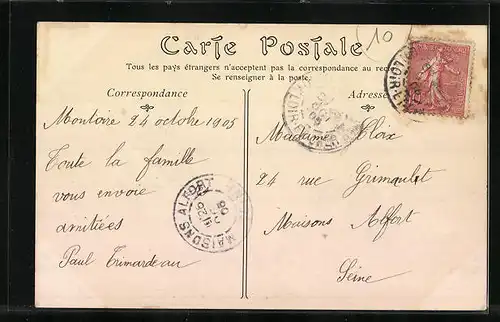 10
Carte Postale
Tous les pays étrangers n'acceptent pas la correspondance au recto
Se renseigner à la poste.
Correspondance
Adresse
Montoire 24 octobre 1905
Toute la famille
vous envoie
amitiées
Paul Trimardeau
Madame Cloix
24 rue Grimoult
Maisons Alfort
Seine
MAISONS-ALFORT